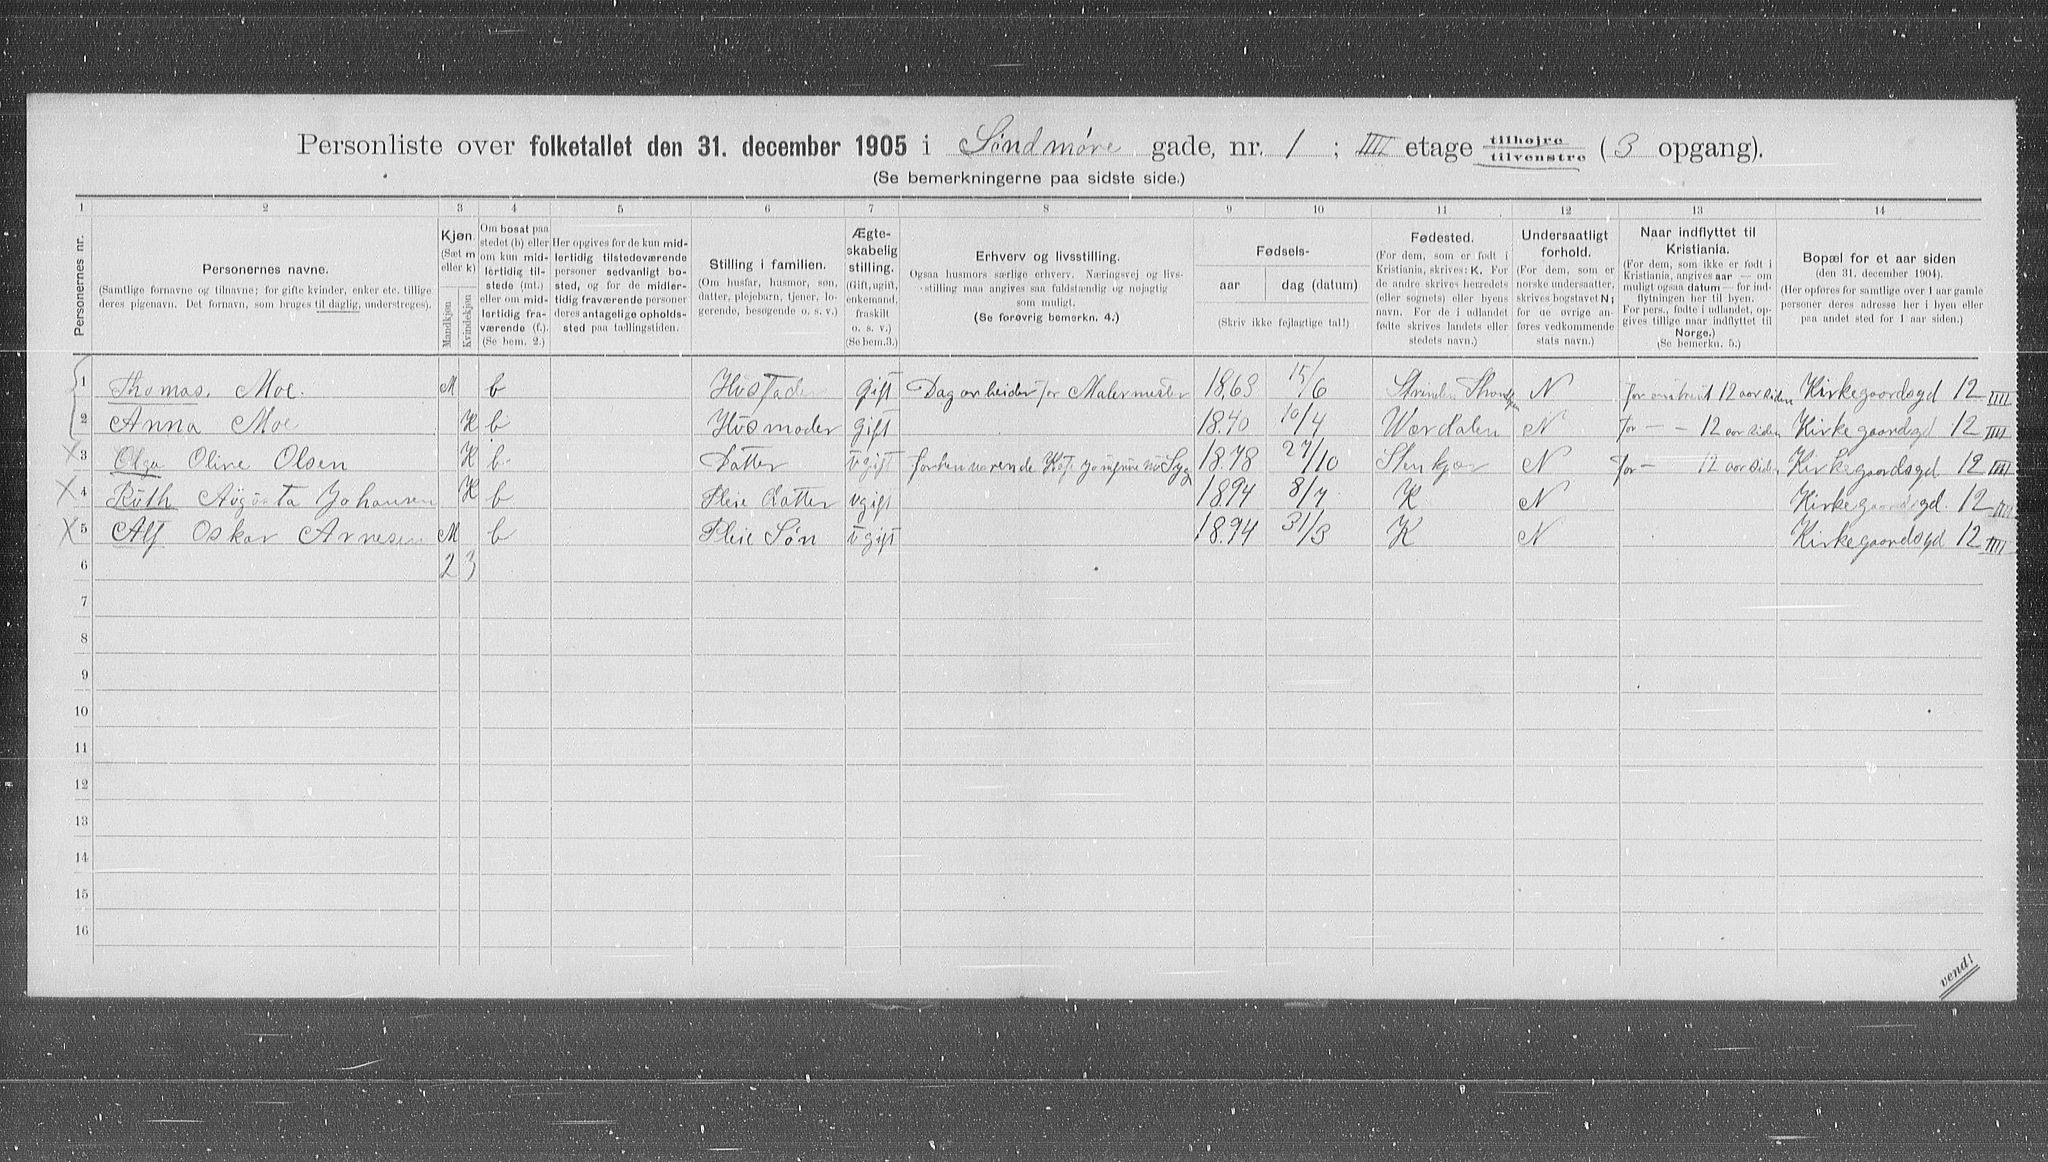 Personliste over folketallet den 31. december 1905 i Søndmøre gade, nr. 1 ; IIII etage tilhøjre tilvenstre ( 3 opgang).
(Se bemerkningerne paa sidste side.)
1 2 3 4 5 6 7 8 9 10 11 12 13 14
Personernes nr.
Personernes navne.
(Samtlige fornavne og tilnavne; for gifte kvinder, enker etc. tillige
deres pigenavn. Det fornavn, som bruges til daglig, understreges).
Kjøn.
(Sæt m
eller k)
Mandkjøn
Kvindekjøn
Om bosat paa
stedet (b) eller
om kun mid-
lertidig til-
stede (mt.)
eller om mid-
lertidig fra-
værende (f.).
(Se bem. 2.)
Her opgives for de kun mid-
lertidig tilstedeværende
personer sedvanlig bo-
sted, og for de midler-
tidig fraværende personer
deres antagelige opholds-
sted paa tællingstiden.
Stilling i familien.
(Om husfar, husmor, søn,
datter, plejebarn, tjener, lo-
gerende, besøgende o. s. v.)
Ægte-
skabelig
stilling.
(Gift, ugift,
enkemand,
fraskilt
o. s. v.)
(Se bem.3.)
Erhverv og livsstilling.
Ogsaa husmors særlige erhverv. Næringsvej og livs-
stilling maa angives saa fuldstændig og nøjagtig
som muligt.
(Se forøvrig bemerkn. 4.)
Fødsels-
aar dag (datum)
(Skriv ikke fejlagtige tal!)
Fødested.
(For dem, som er født i
Kristiania, skrives: K. For
de andre skrives herredets
(eller sognets) eller byens
navn. For de i udlandet
fødte skrives landets eller
stedets navn.)
Undersaatligt
forhold.
(For dem, som er
norske undersaatter,
skrives bogstavet N;
for de øvrige an-
føres vedkommende
stats navn.)
Naar indflyttet til
Kristiania.
(For dem, som ikke er født i
Kristiania, angives aar — om
muligt ogsaa datum — for ind-
flytningen her til byen.
For pers., fødte i udlandet, op-
gives tillige naar indflyttet til
Norge.)
(Se bemerkn. 5.)
Bopæl for et aar siden
(den 31. december 1904).
(Her opføres for samtlige over 1 aar gamle
personer deres adresse her i byen eller
paa andet sted for 1 aar siden.)
1 Thomas. Moe. M b Husfader gift Dagarbeider for Malermester 1863 15/6 Strinden N 12 aar siden Kirkegaardsgd 12 IIII
2 Anna Moe K b Husmoder gift 1840 10/4 Værdalen N for — — 12 aar siden Kirkegaardsgd 12 IIII
3 Olga Oline Olsen K b Datter ugift forhenværende nu Syg 1878 27/10 Stenkjær N for — 12 aar siden Kirkegaardsgd 12 IIII
4 Ruth Augusta Johansen K b Pleie datter ugift 1894 8/7 K N Kirkegaardsgd. 12 IIII
5 Alf Oskar Arnesen M b Pleie Søn ugift 1894 31/3 K N Kirkegaardsgd 12 IIII
6 2 3
7
8
9
10
11
12
13
14
15
16
vend!